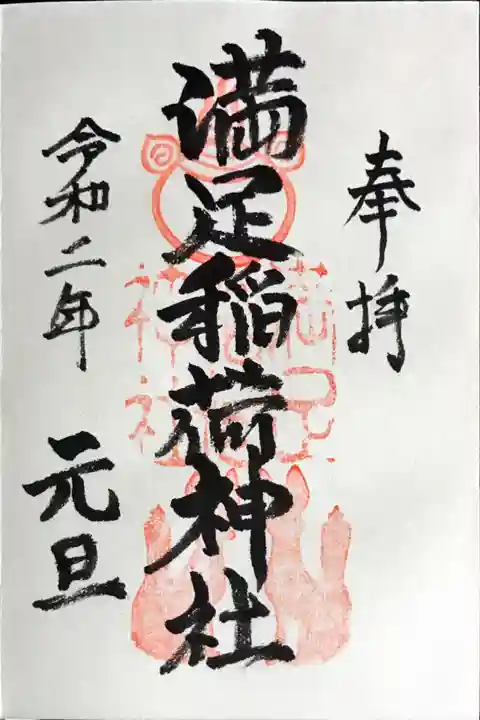 奉拝
満足稲荷神社
令和二年 元旦